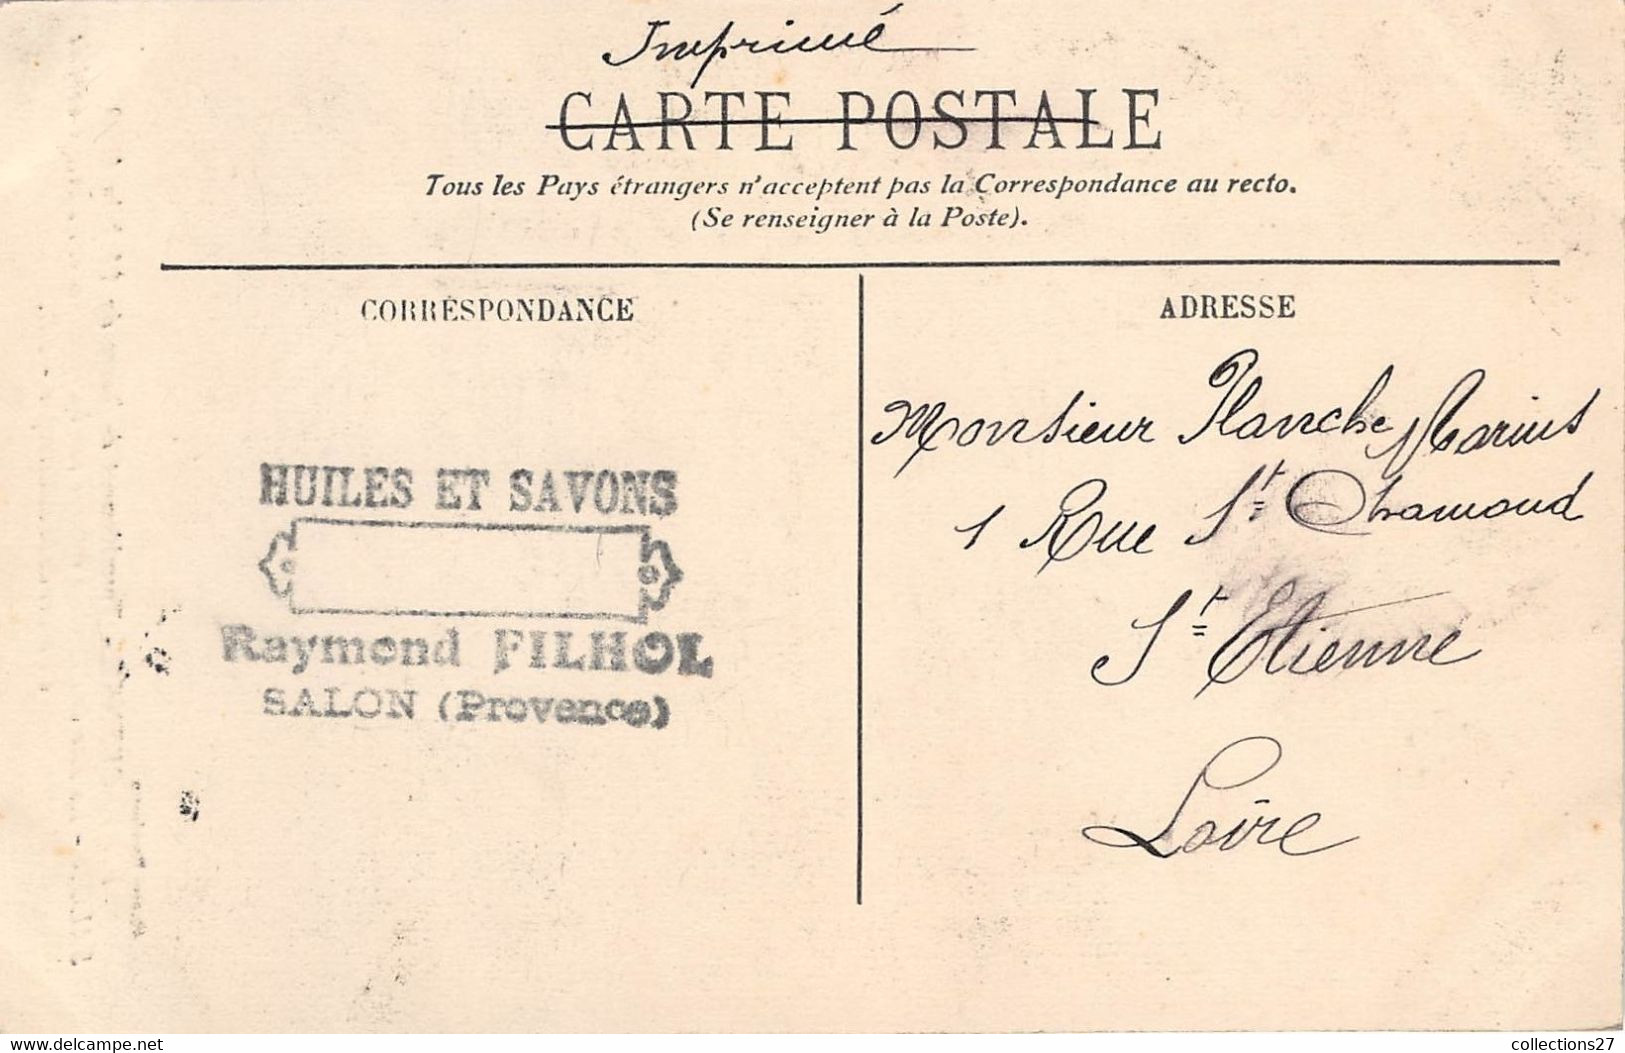 Imprimé
CARTE POSTALE
Tous les Pays étrangers n'acceptent pas la Correspondance au recto.
(Se renseigner à la Poste).
CORRESPONDANCE
HUILES ET SAVONS
Raymond FILHOL
SALON (Provence)
ADRESSE
Monsieur Planche Marius
1 Rue St Chamond
St Etienne
Loire
www.delcampe.net
collections27